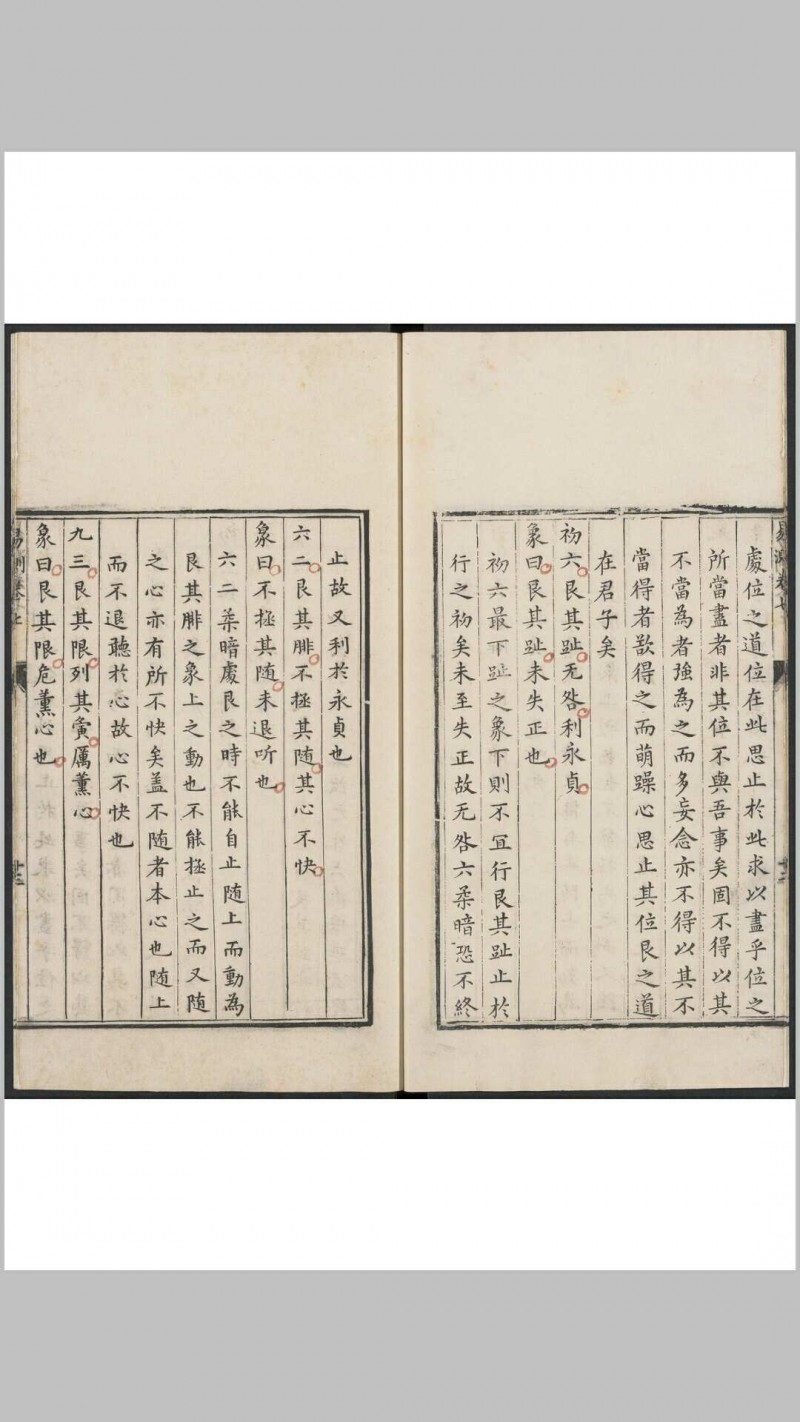 處位之道位在此思止於此求以盡乎位之
所當盡者非其位不與吾事矣固不得以其
不當為者強為之而多妄念亦不得以其不
當得者欲得之而萌躁心思止其位艮之道
在君子矣
初六艮其趾无咎利永貞
象曰艮其趾未失正也
初六最下趾之象下則不宜行艮其趾止於
行之初矣未至失正故无咎六柔暗恐不終
止故又利於永貞也
六二艮其腓不極其隨其心不快
象曰不極其隨未退听也
六二柔暗處艮之時不能自止随上而動為
艮其腓之象上之動也不能極止之而又随
之心亦有所不快矣盖不随者本心也随上
而不退聽於心故心不快也
九三艮其限列其夤厲薰心
象曰艮其限危薰心也